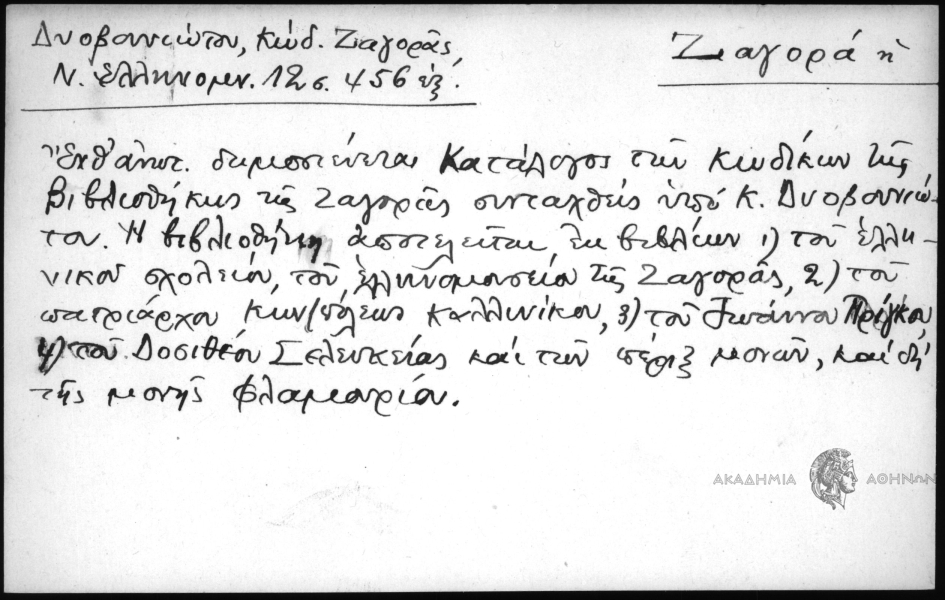 Δυοβουνιώτου, Κώδ. Ζαγορᾶς,
Ν. Ἑλληνομν. 12 σ. 456 ἑξ.
Ζαγορά ἡ
Ἐνθ' ἀνωτ. δημοσιεύεται Κατάλογος τῶν κωδίκων τῆς
Βιβλιοθήκης τῆς Ζαγορᾶς συνταχθείς ὑπό Κ. Δυοβουνιώ-
του. Ἡ βιβλιοθήκη ἀποτελεῖται ἐκ βιβλίων 1) τοῦ ἑλλη-
νικοῦ σχολείου, τοῦ ἑλληνομουσείου τῆς Ζαγορᾶς, 2) τοῦ
πατριάρχου Κων/πόλεως Καλλινίκου, 3) τοῦ Ἰωάννου Πρίγκου,
4) τοῦ Δοσιθέου Σελευκείας καί τῶν πέριξ μονῶν, καί δή
τῆς μονῆς Φλαμουρίου.
ΑΚΑΔΗΜΙΑ ΑΘΗΝΩΝ